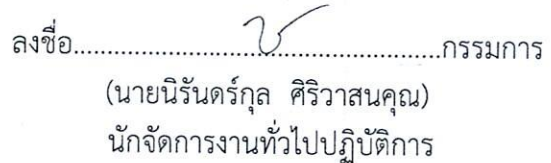 ลงชื่อ............................................................กรรมการ
(นายนิรันดร์กุล ศิริวาสนคุณ)
นักจัดการงานทั่วไปปฏิบัติการ